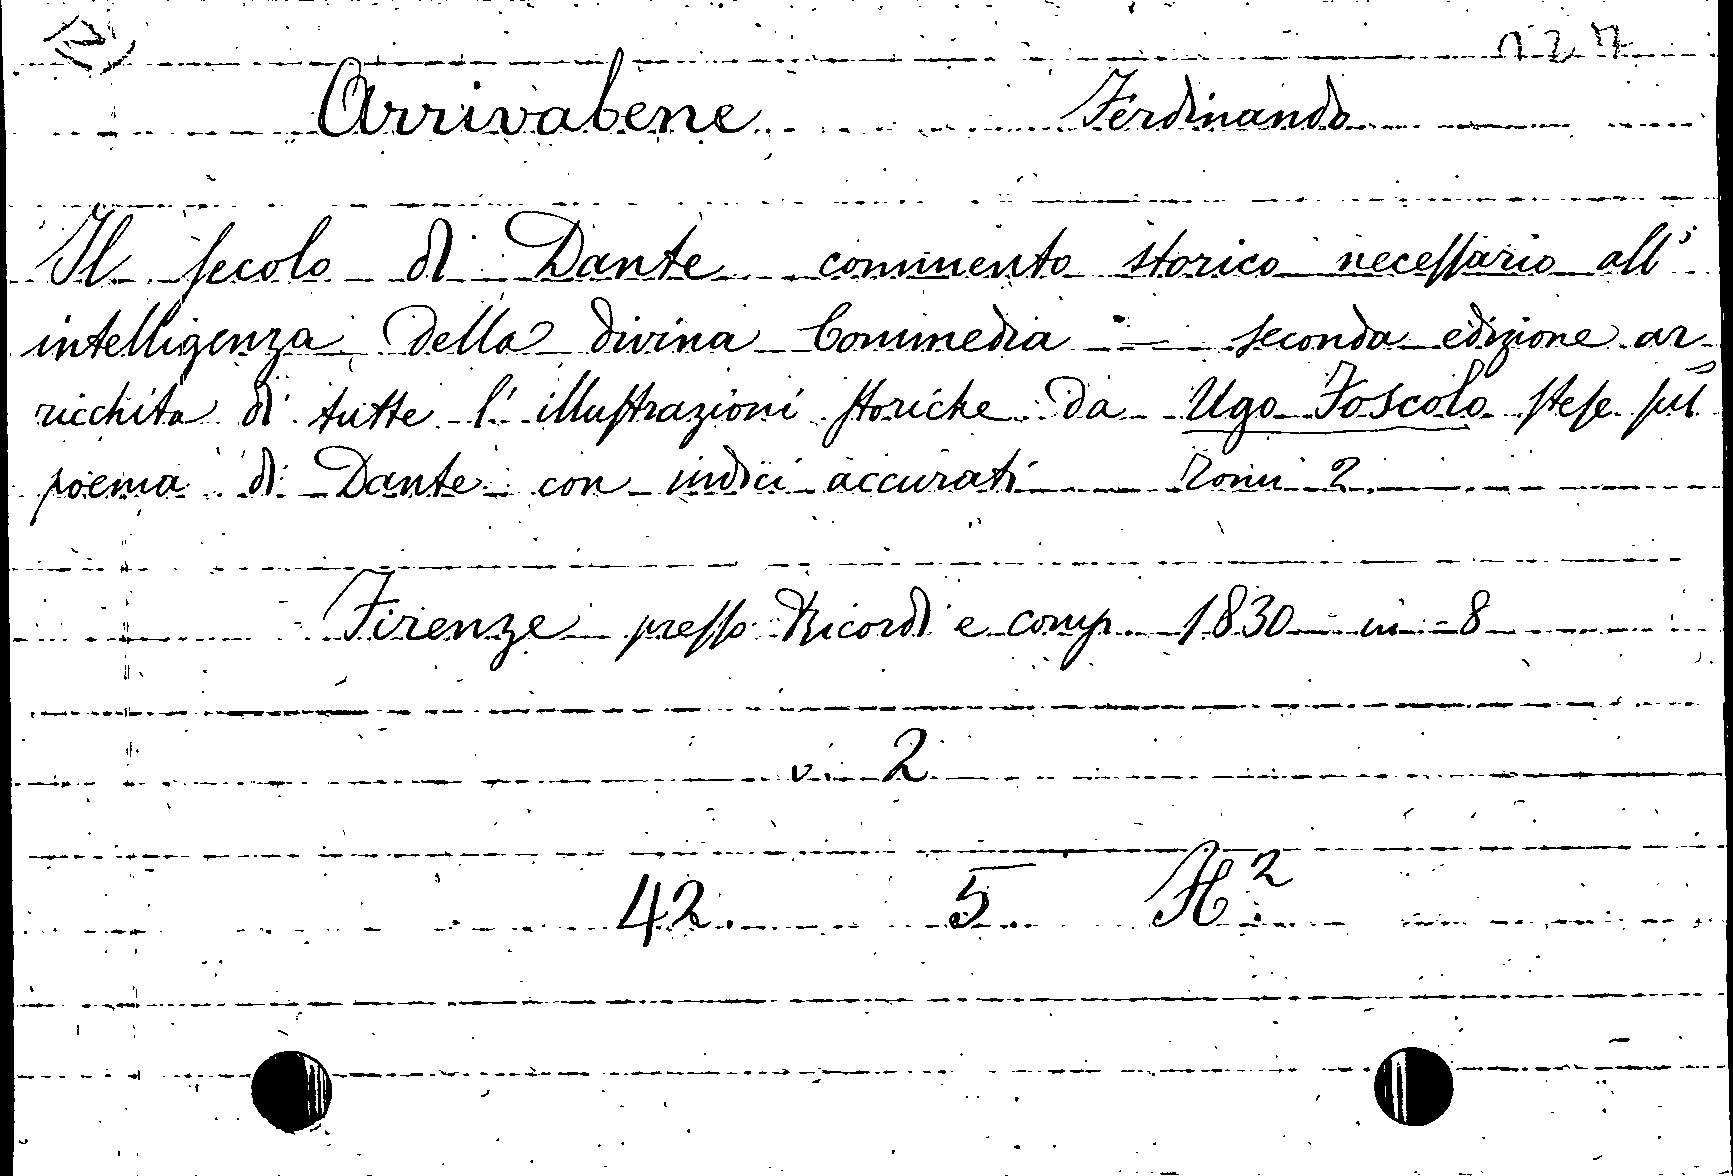 (2) 127
Arrivabene Ferdinando
Il secolo di Dante commento storico necessario all'
intelligenza della divina Commedia - seconda edizione ar-
ricchita di tutte l'illustrazioni storiche da Ugo Foscolo stese sul
poema di Dante con indici accurati Tomi 2.
Firenze presso Ricordi e comp. 1830 in-8
v. 2
42. 5. H².